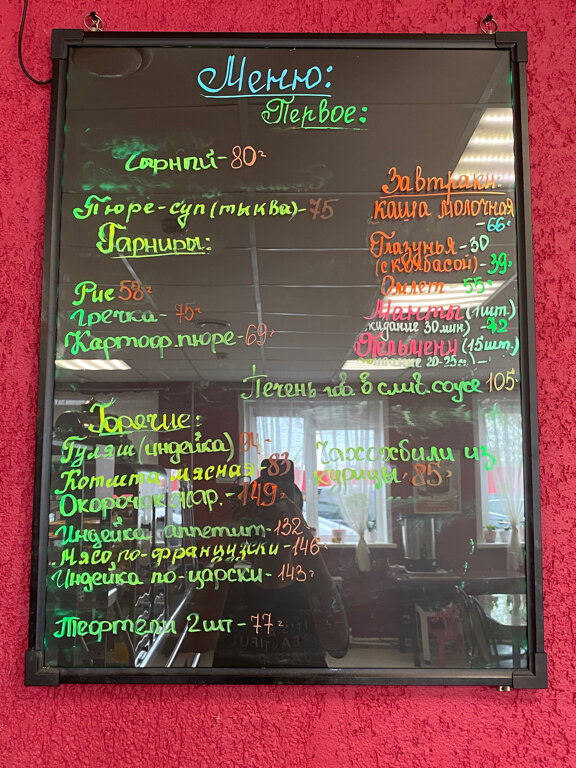 Меню:
Первое:
Сырный-80г
Пюре-суп(тыква)-75
Гарниры:
Рис 58г
Гречка-75г
Картоф.пюре-69г
Завтраки:
каша молочная
-66г
Глазунья-30
(с колбасой)-39г
Омлет 55г
Манты(1шт.)
жидание 30 мин.)
Пельмени(15шт.)
20-25м)-
Печень гов. в слив. соусе 105
Горячие:
Гуляш(индейка)
Котлета мясная-83
Окорочок жар.-149
Индейка аппетит-132г
Мясо по-французски-146г
Индейка по-царски-143г
Чахохбили из
курицы 85г
Тефтели 2шт-77г